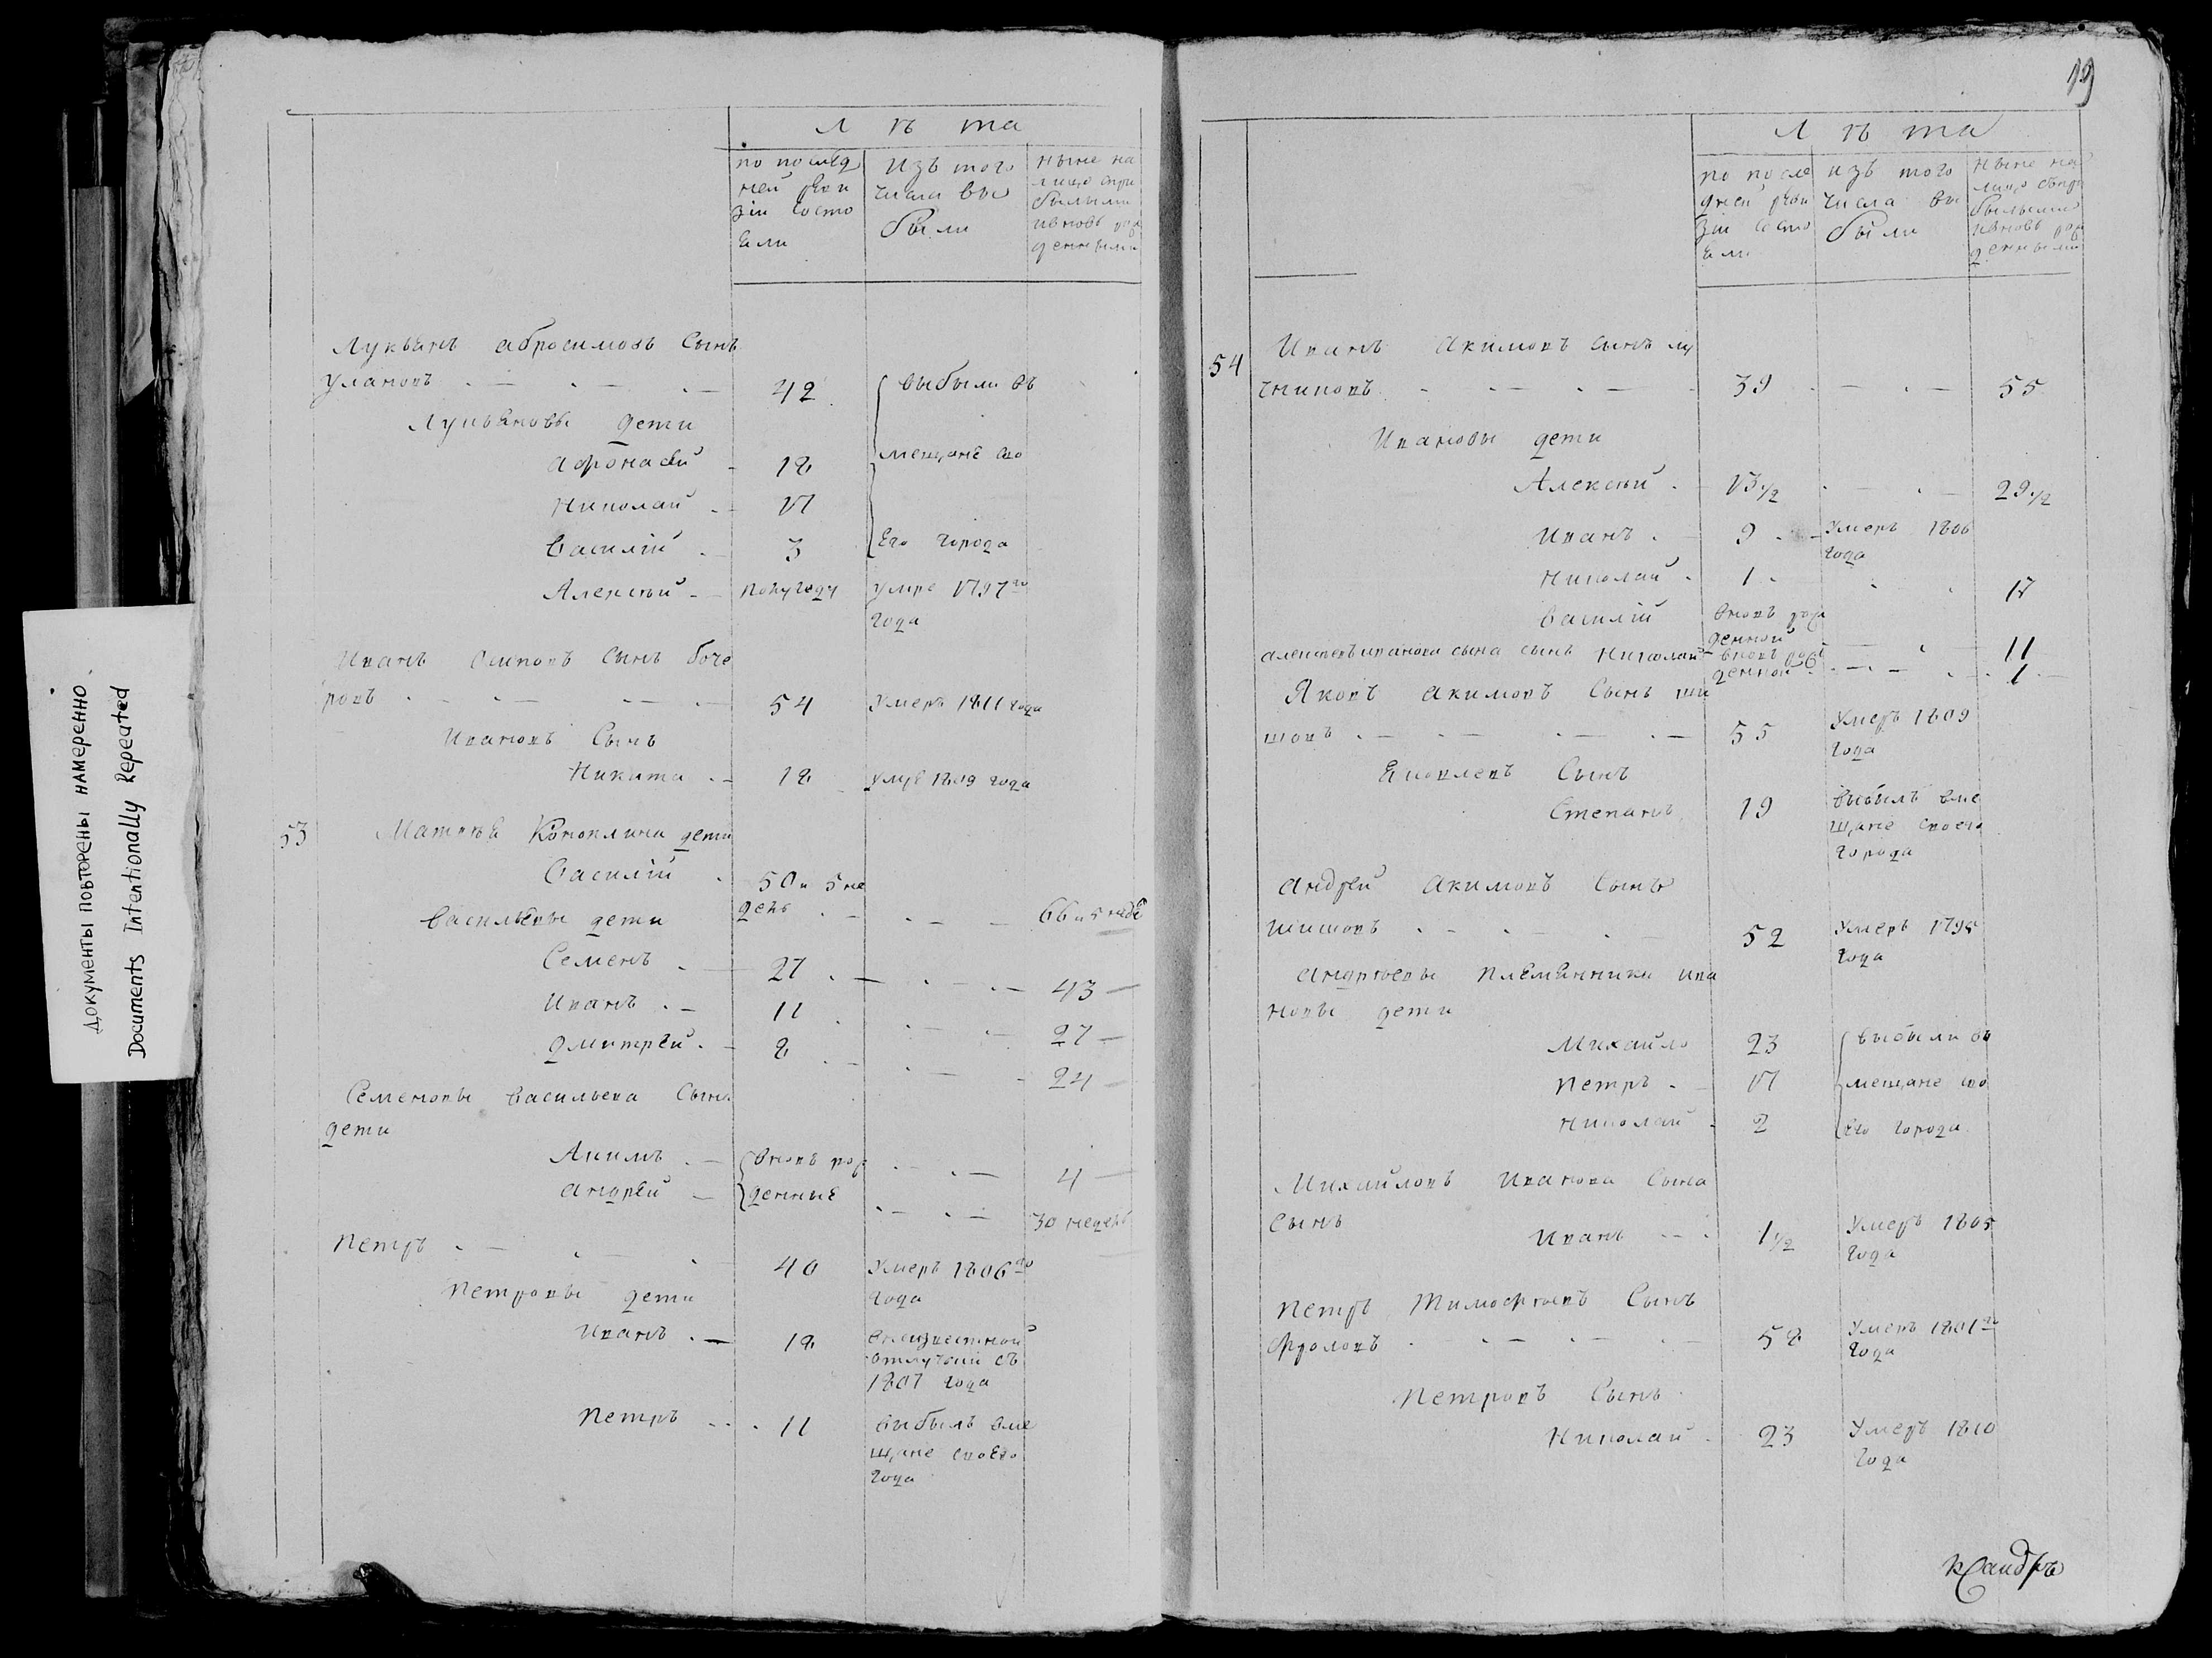 ДОКУМЕНТЫ ПОВТОРЕНЫ НАМЕРЕННО
Documents Intentionally Repeated
Лѣта
по послед
ней реви
зіи состо
яли
изъ того
числа вы
были
ныне на
лицо спри
былыми
ивновь рож
денными
Лукьянъ абросимовъ Сынъ
Улановъ 42 выбыли въ
Лукьяновы дети
Афонасей 18 мещане сво
Николай 17
Василій 3 Его города
Алексѣй полугоду Умре 1797го
года
Иванъ Осиповъ Сынъ боче
ровъ 54 Умеръ 1811 года
Ивановъ Сынъ
Никита 18 умре 1809 года
53 Матвѣя Коноплина дети
Василій 50 и 5 не
дель 66 и 5 неде
Васильевы дети
Семенъ 27 43
Иванъ 11 27
Дмитрей 8 24
Семеновы васильева Сына
дети
Акимъ вновь рож 4
Андрей денные 30 недель
Петръ 40 Умеръ 1806го
года
Петровы дети
Иванъ 18 внеизвестной
отлучки съ
1807 года
Петръ 11 выбылъ вме
щане своего
года
19
Лѣта
по после
дней реви
зіи состо
яли
изъ того
числа вы
были
ныне на
лицо съпри
былыми
ивновь рож
денными
54 Иванъ Акимовъ сынъ лу
чниковъ 39 55
Ивановы дети
Алексѣй 13 1/2 29 1/2
Иванъ 9 Умеръ 1806
года
Николай 1 17
Василій вновь рож
денной 11
Алексѣевъ иванова сына сынъ Николай вновь рож
денной 1
Яковъ Акимовъ Сынъ ши
шовъ 55 Умеръ 1809
года
Яковлевъ Сынъ
Степанъ 19 выбылъ вме
щане своего
города
Андрей Акимовъ Сынъ
шишовъ 52 Умеръ 1798
года
Андрѣевы племянники ива
новы дети
Михайло 23 выбыли въ
Петръ 17 мещане сво
Николай 2 Его города
Михайловъ Иванова Сына
Сынъ Иванъ 1 1/2 Умеръ 1805
года
Петръ Тимофѣевъ Сынъ
Фроловъ 58 Умеръ 1801го
года
Петровъ Сынъ
Николай 23 Умеръ 1810
года